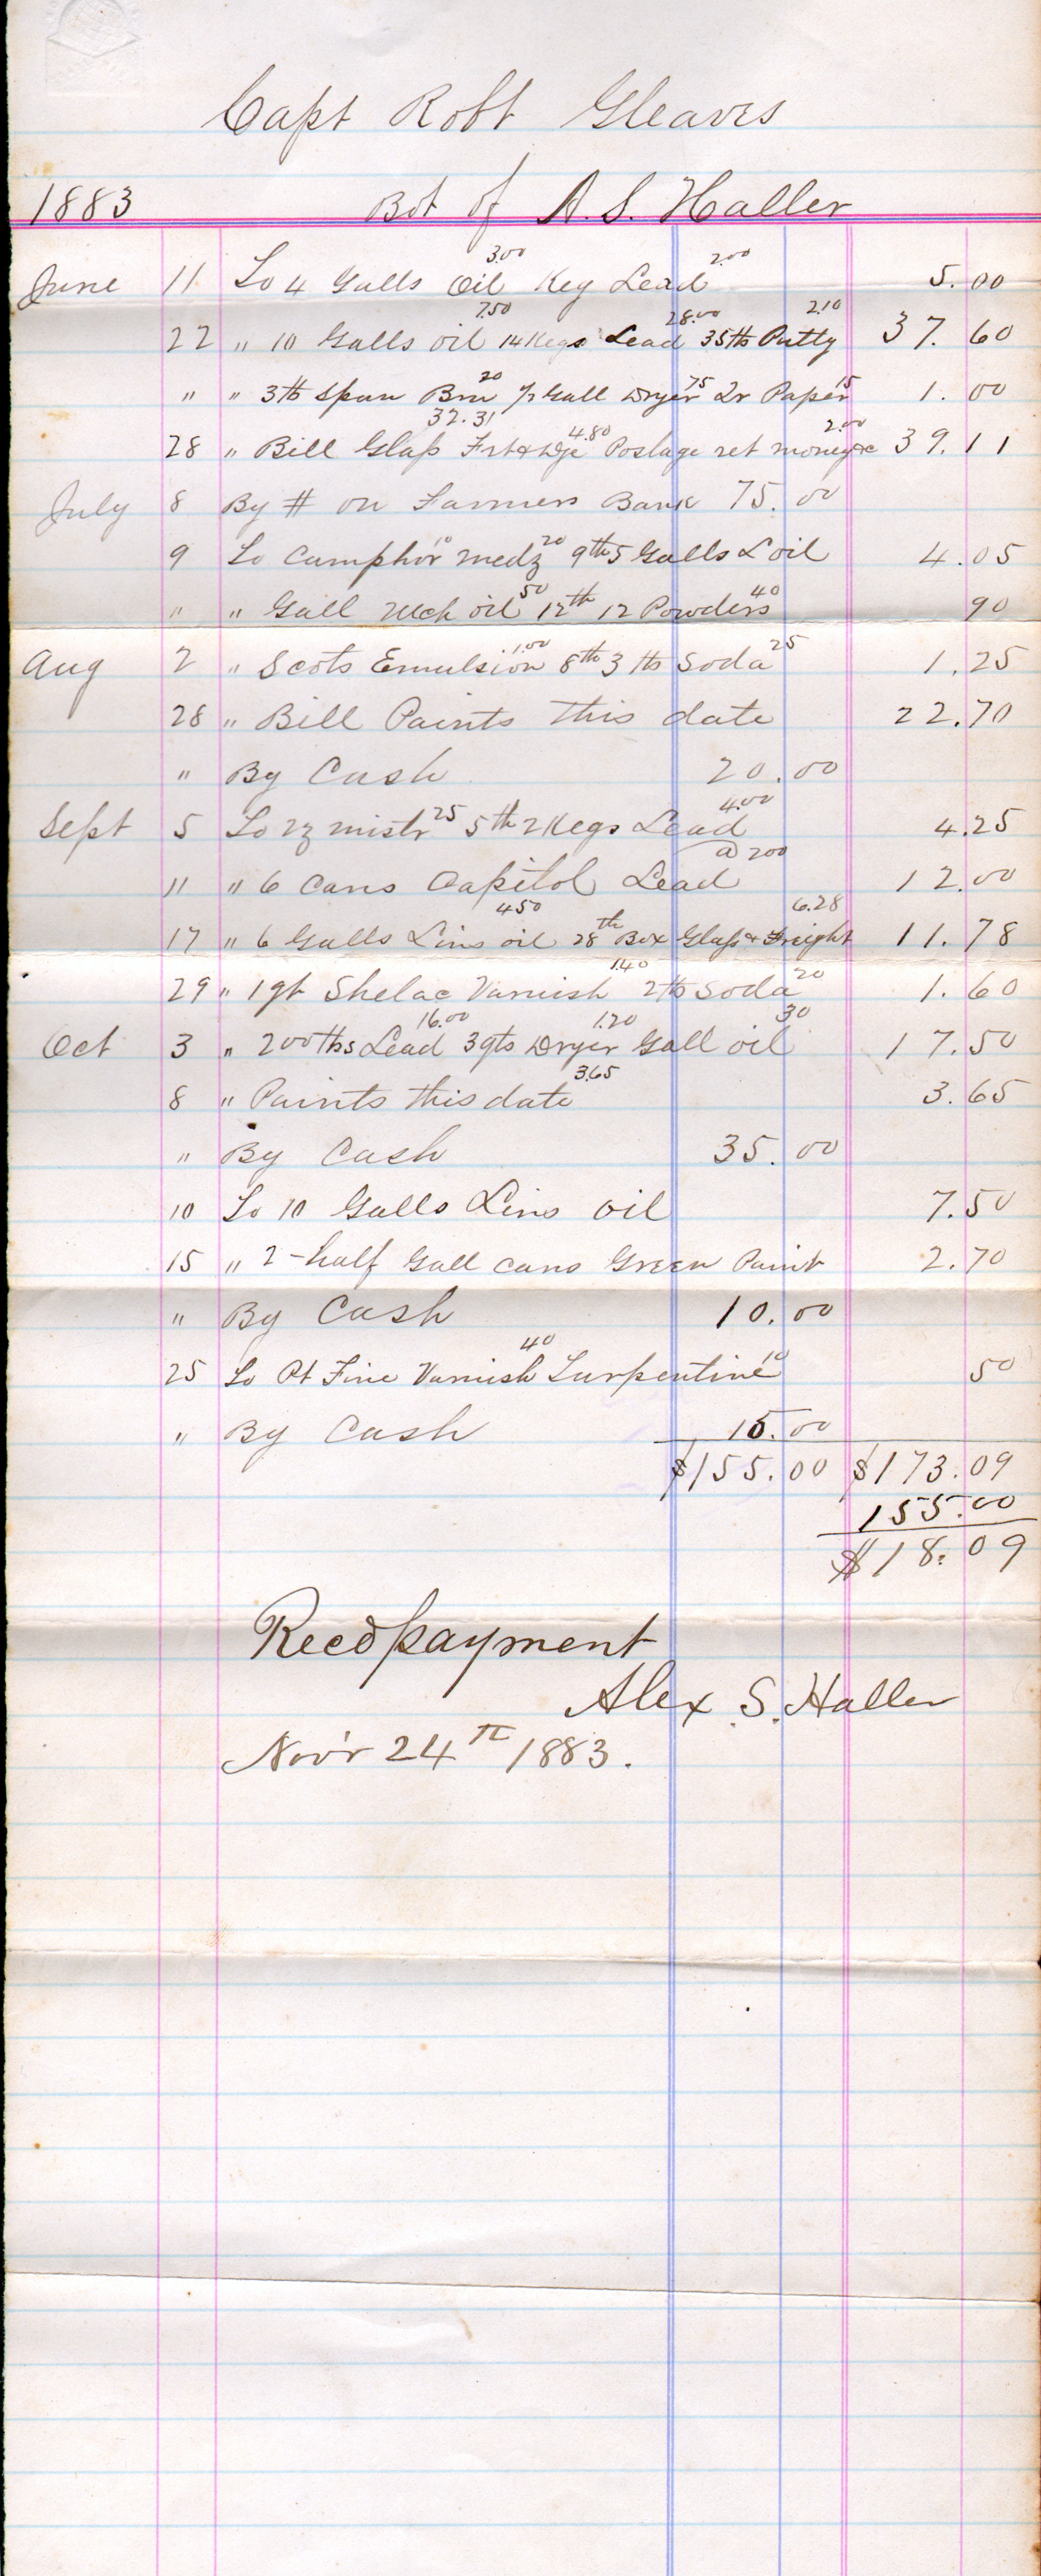 Capt Robt Gleaves
1883 Bot of A. S. Haller
June 11 To 4 Galls Oil 3.00 Keg Lead 2.00 5.00
22 " 10 Galls oil 7.50 14 Kegs Lead 28.00 35 lb Putty 2.10 37.60
" " 3 lb Span Brn 20 1/2 Gall Dryer 75 2r Paper 15 1.00
28 " Bill Glass 32.31 Frt & Dge 4.80 Postage ret money &c 2.00 39.11
July 8 By # on Farmers Bank 75.00
9 To Camphor 10 medz 20 9th 5 Galls L oil 4.05
" " Gall Mch oil 50 12th 12 Powders 40 90
Aug 2 " Scots Emulsion 1.00 8th 3 lb Soda 25 1.25
28 " Bill Paints this date 22.70
" By Cash 20.00
Sept 5 To 2z mistr 25 5th 2 Kegs Lead 4.00 4.25
11 " 6 Cans Capitol Lead @ 200 12.00
17 " 6 Galls Lins oil 450 28th Box Glass & Freight 6.28 11.78
29 " 1 qt Shelac Varnish 1.40 2 lb Soda 20 1.60
Oct 3 " 200 lbs Lead 16.00 3 qts Dryer 1.20 Gall oil 30 17.50
8 " Paints this date 3.65 3.65
" By Cash 35.00
10 To 10 Galls Lins oil 7.50
15 " 2 - half Gall cans Green Paint 2.70
" By Cash 10.00
25 To Pt Fine Varnish 40 Turpentine 10 50
" By Cash 15.00
$155.00 $173.09
155.00
$18.09
Recd payment
Alex S. Haller
Nov'r 24th 1883.